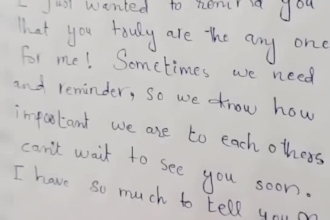 I just wanted to remind you
that you truly are the any one
for me! Sometimes we need
and reminder, so we know how
important we are to each others
can't wait to see you soon.
I have so much to tell you